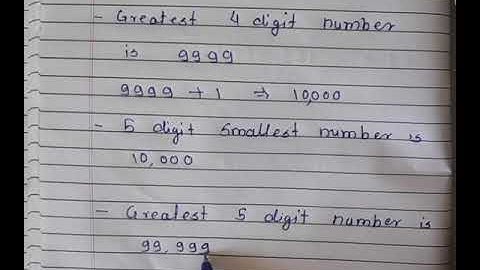 - Greatest 4 digit number
is 9999
9999 + 1 ⇒ 10,000
- 5 digit smallest number is
10,000
- Greatest 5 digit number is
99,999